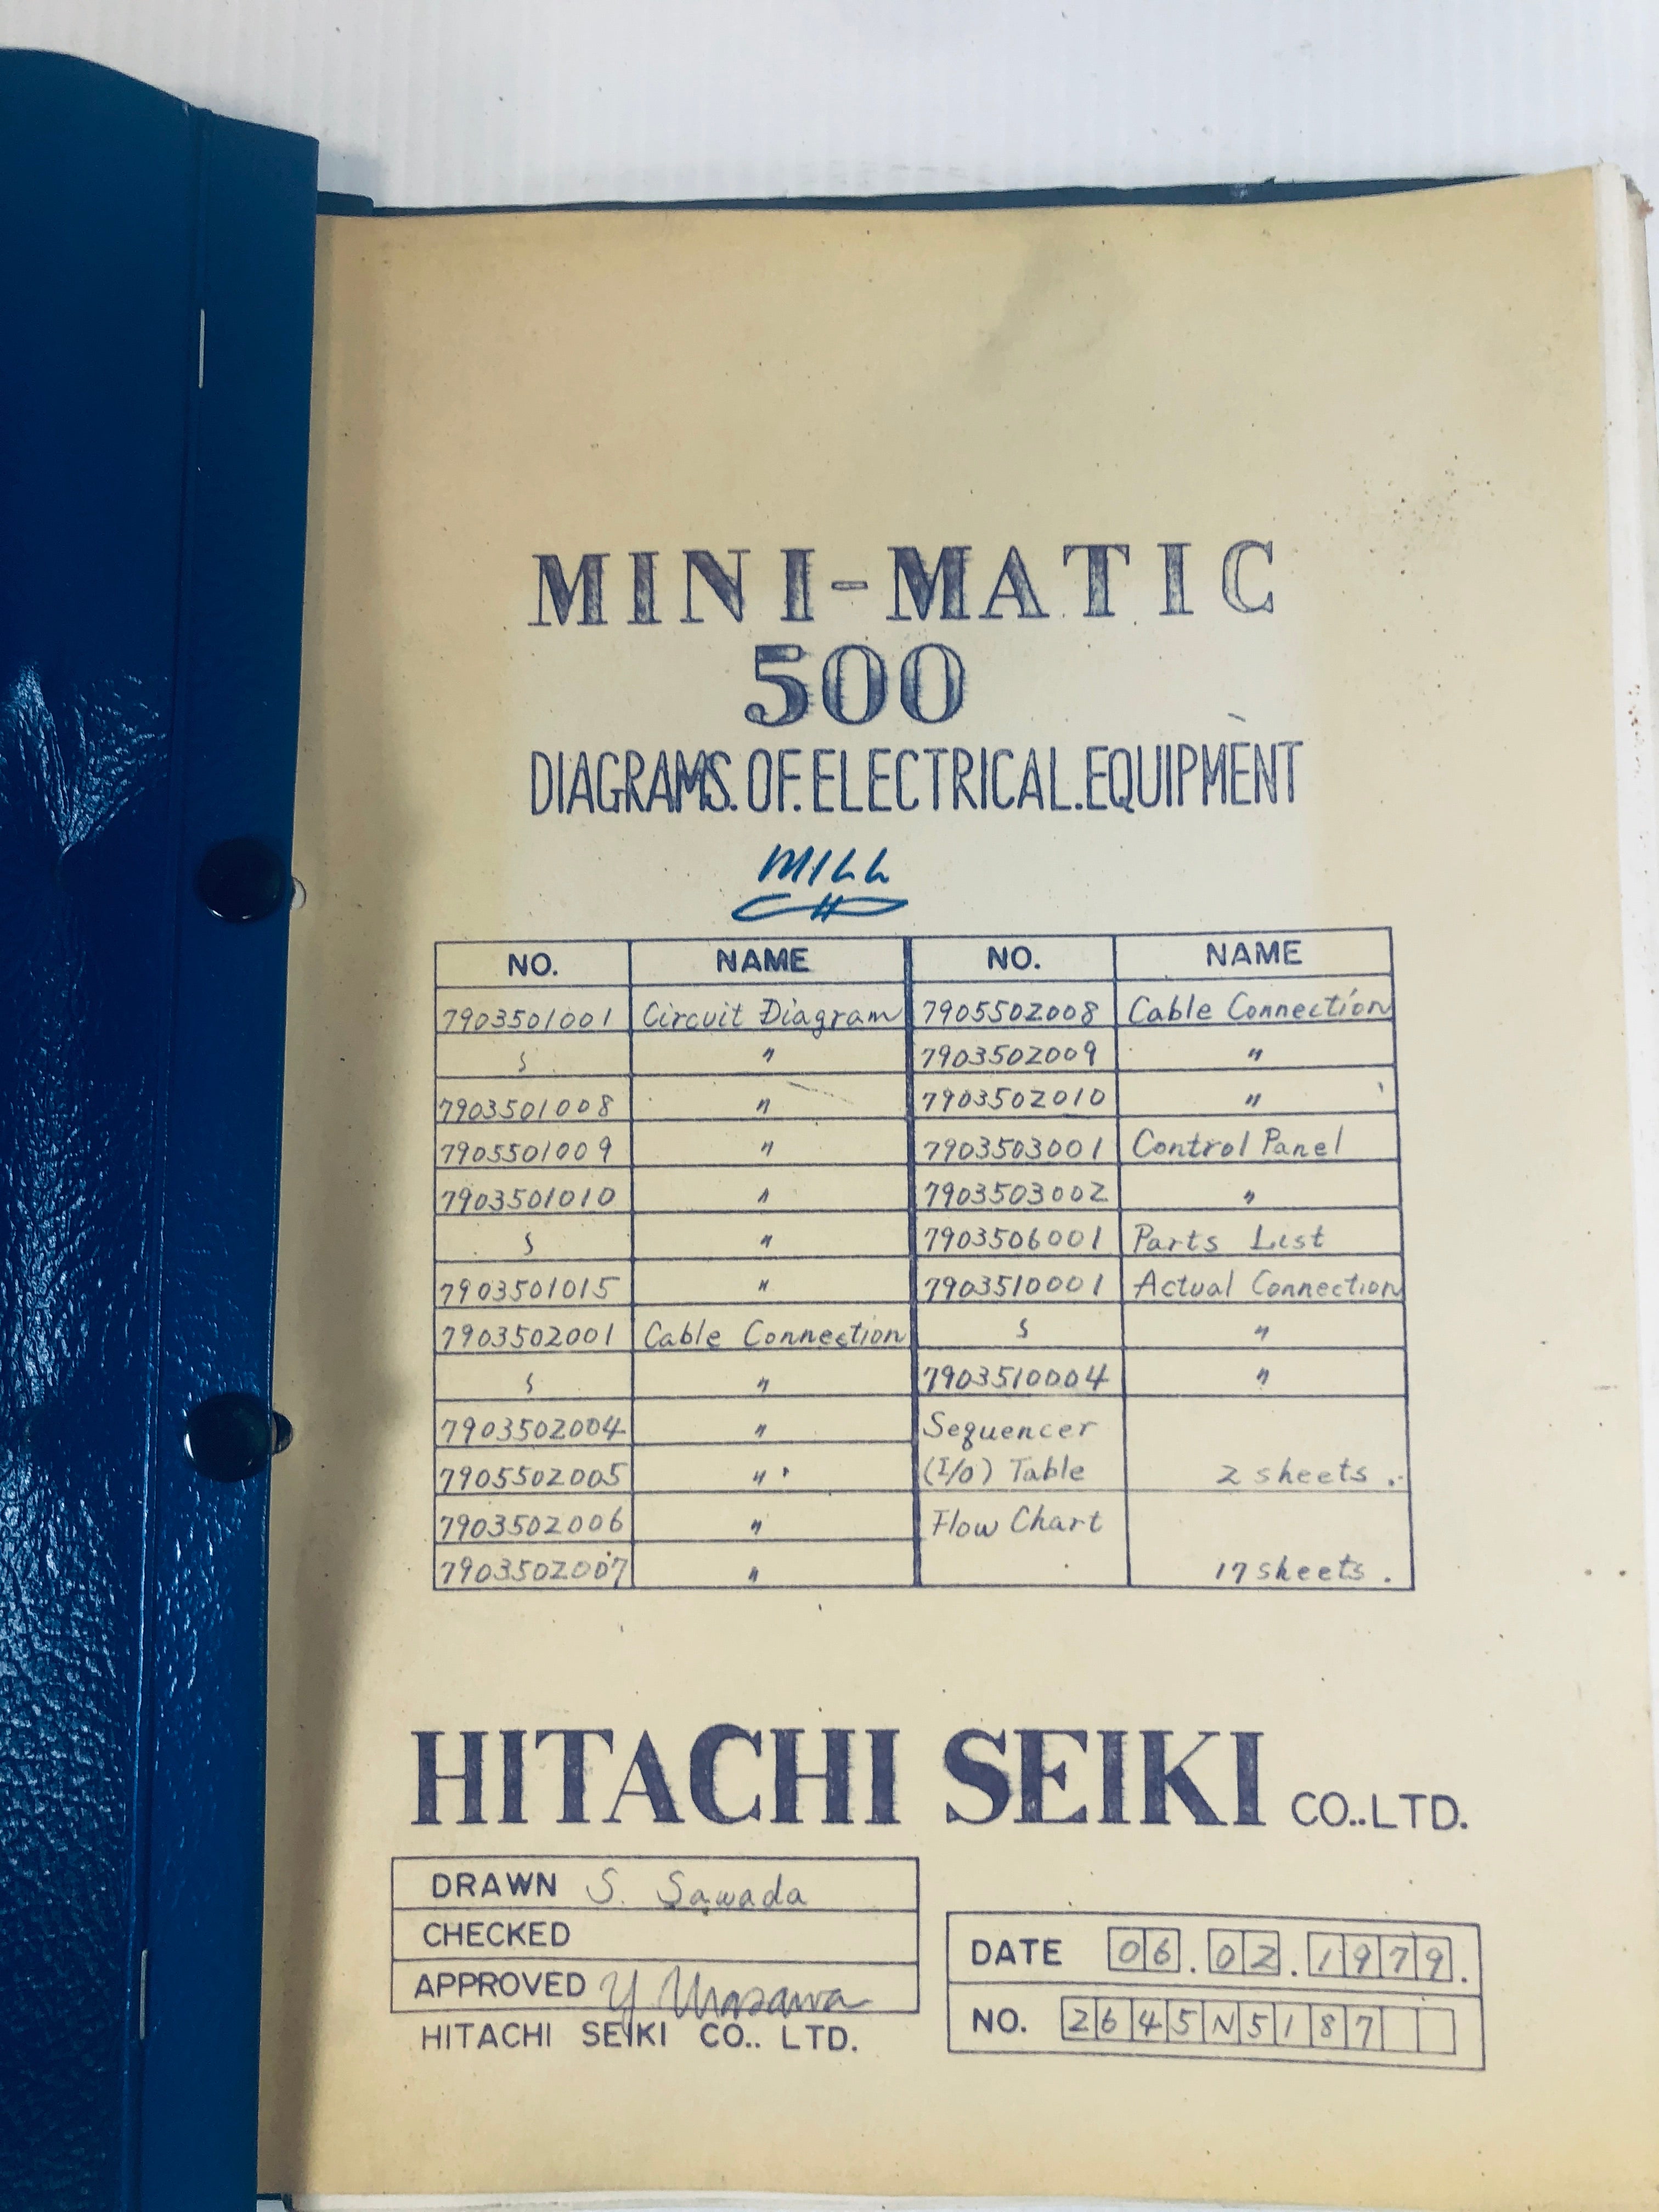 MINI-MATIC
500
DIAGRAMS.OF.ELECTRICAL.EQUIPMENT
MILL
NO. NAME NO. NAME
7903501001 Circuit Diagram 7905502008 Cable Connection
S 〃 7903502009 〃
7903501008 〃 7903502010 〃
7905501009 〃 7903503001 Control Panel
7903501010 〃 7903503002 〃
S 〃 7903506001 Parts List
7903501015 〃 7903510001 Actual Connection
7903502001 Cable Connection S 〃
S 〃 7903510004 〃
7903502004 〃 Sequencer
7905502005 〃 (I/O) Table 2 sheets.
7903502006 〃 Flow Chart
7903502007 〃 17 sheets.
HITACHI SEIKI CO..LTD.
DRAWN S. Sawada
CHECKED
APPROVED Y
HITACHI SEIKI CO.. LTD.
DATE 06.02.1979.
NO. 2645N5187